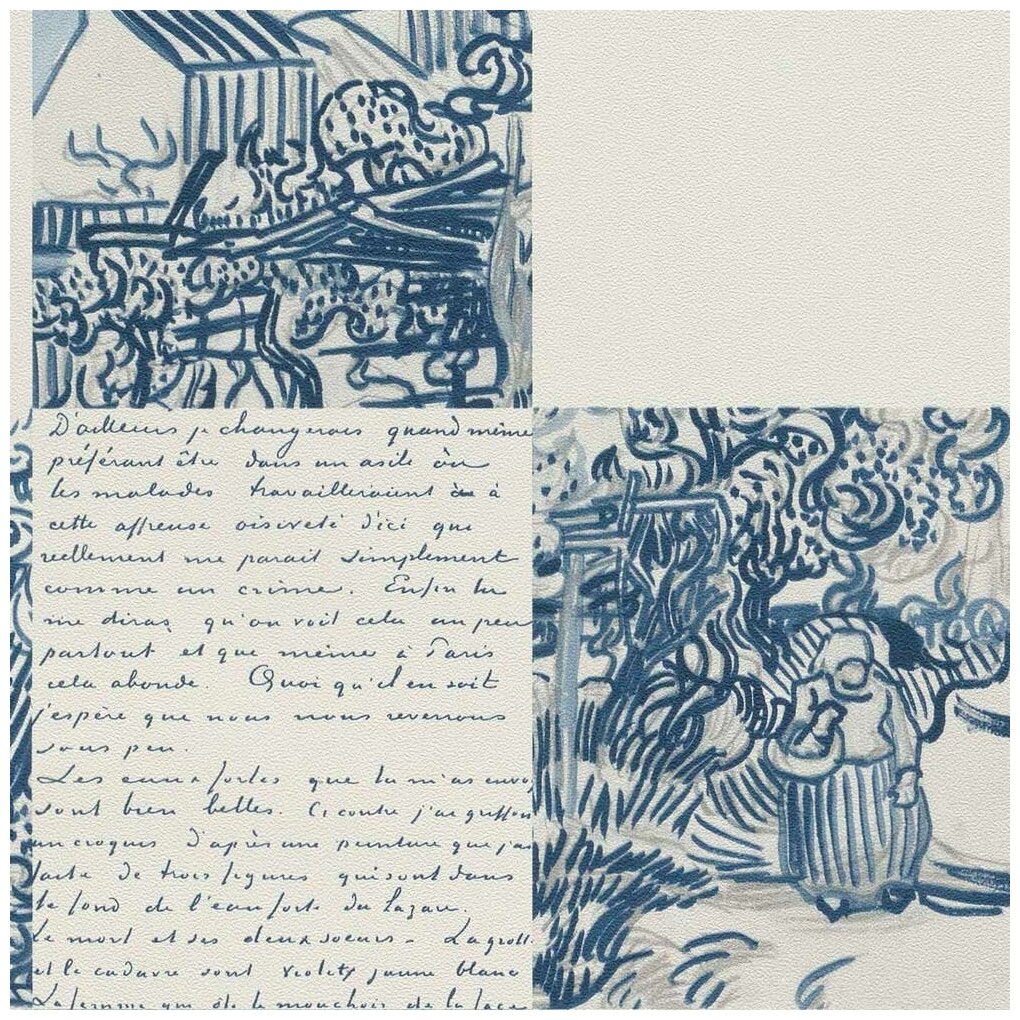 D'ailleurs je changerais quand même
préférant être dans un asile où
les malades travailleraient à
cette affreuse oisiveté d'ici que
reellement me parait simplement
comme un crime. Enfin tu
me diras, qu'on voit cela un peu
partout et que même à Paris
cela abonde. Quoi qu'il en soit
j'espère que nous nous reverrons
sous peu.
Les eaux fortes que tu m'as envo
sont bien belles. Ci contre j'ai griffon
un croquis d'après une peinture que j'ai
faite de trois figures qui sont dans
le fond de l'eau forte du Lazare.
Le mort et ses deux soeurs. La grott
et le cadavre sont violets jaune blanc
La femme qui ôte le mouchoir de la face